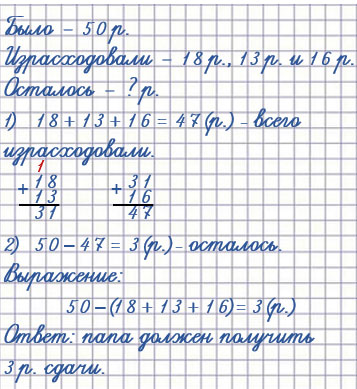 Было – 50 р.
Израсходовали – 18 р., 13 р. и 16 р.
Осталось – ? р.
1) 18 + 13 + 16 = 47 (р.) – всего
израсходовали.
1
+ 18 + 31
13 16
31 47
2) 50 – 47 = 3 (р.) – осталось.
Выражение:
50 – (18 + 13 + 16) = 3 (р.)
Ответ: папа должен получить
3 р. сдачи.